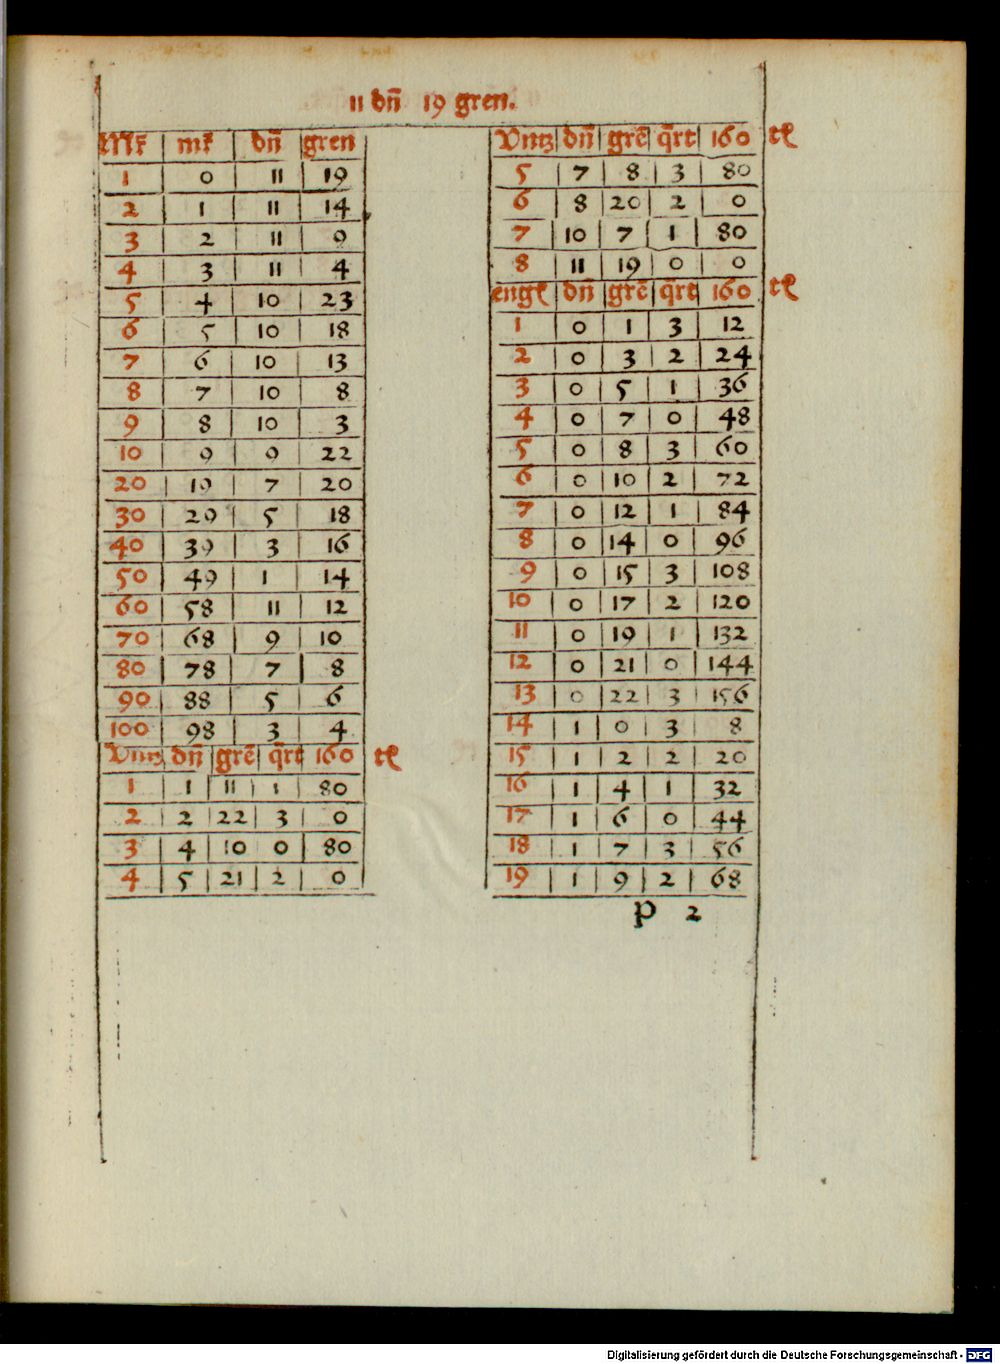 11 dn̄ 19 gren.
Mr̄ | mr̄ | dn̄ | gren
1 | 0 | 11 | 19
2 | 1 | 11 | 14
3 | 2 | 11 | 9
4 | 3 | 11 | 4
5 | 4 | 10 | 23
6 | 5 | 10 | 18
7 | 6 | 10 | 13
8 | 7 | 10 | 8
9 | 8 | 10 | 3
10 | 9 | 9 | 22
20 | 19 | 7 | 20
30 | 29 | 5 | 18
40 | 39 | 3 | 16
50 | 49 | 1 | 14
60 | 58 | 11 | 12
70 | 68 | 9 | 10
80 | 78 | 7 | 8
90 | 88 | 5 | 6
100 | 98 | 3 | 4
Vntz | dn̄ | grē | q̄rt | 160 tl
1 | 1 | 11 | 1 | 80
2 | 2 | 22 | 3 | 0
3 | 4 | 10 | 0 | 80
4 | 5 | 21 | 2 | 0
Vntz | dn̄ | grē | q̄rt | 160 tl
5 | 7 | 8 | 3 | 80
6 | 8 | 20 | 2 | 0
7 | 10 | 7 | 1 | 80
8 | 11 | 19 | 0 | 0
engl | dn̄ | grē | q̄rt | 160 tl
1 | 0 | 1 | 3 | 12
2 | 0 | 3 | 2 | 24
3 | 0 | 5 | 1 | 36
4 | 0 | 7 | 0 | 48
5 | 0 | 8 | 3 | 60
6 | 0 | 10 | 2 | 72
7 | 0 | 12 | 1 | 84
8 | 0 | 14 | 0 | 96
9 | 0 | 15 | 3 | 108
10 | 0 | 17 | 2 | 120
11 | 0 | 19 | 1 | 132
12 | 0 | 21 | 0 | 144
13 | 0 | 22 | 3 | 156
14 | 1 | 0 | 3 | 8
15 | 1 | 2 | 2 | 20
16 | 1 | 4 | 1 | 32
17 | 1 | 6 | 0 | 44
18 | 1 | 7 | 3 | 56
19 | 1 | 9 | 2 | 68
p 2
Digitalisierung gefördert durch die Deutsche Forschungsgemeinschaft - DFG